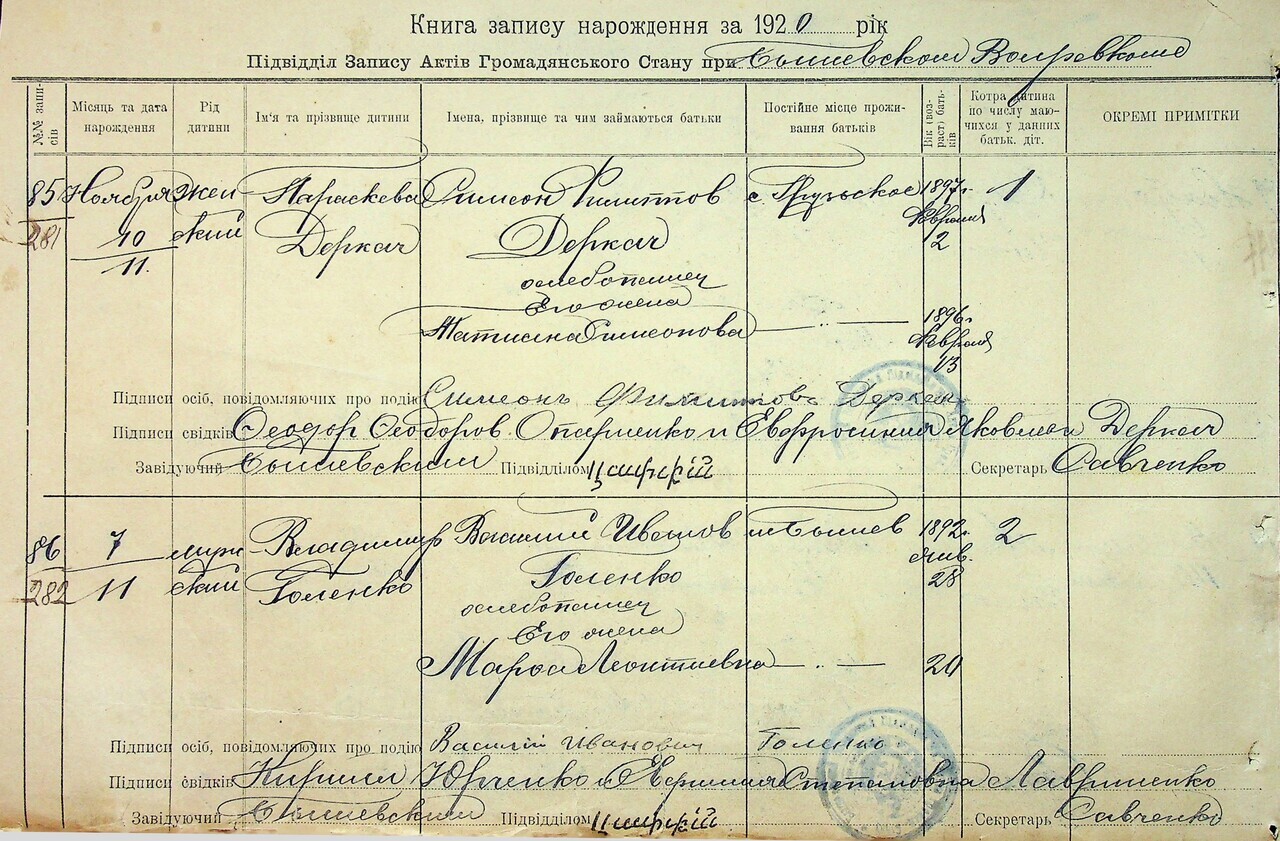 Книга запису нарождення за 1920 рік
Підвідділ Запису Актів Громадянського Стану при Бышевском Волревкоме
№№ запи-
сів
Місяць та дата
нарождення
Рід
дитини
Ім'я та прізвище дитини
Імена, прізвище та чим займаються батьки
Постійне місце прожи-
вання батьків
Вік (воз-
раст) бать-
ків
Котра дитина
по числу маю-
чихся у данних
батьк. діт.
ОКРЕМІ ПРИМІТКИ
85 Ноября жен Параскева Симеон Филиппов с. Грузьское 1897г. 1
281 10 ский Деркач Деркач Февраля
11. 2
хлебопашец
Его жена
Татиана Симеонова — „ — 1896г.
Февраля
13
Підписи осіб, повідомляючих про подію Симеонъ Филиппов Деркач
Підписи свідків Феодор Феодоров Опарненко и Евфросиния Яковлева Деркач
Завідуючий Бышевским Підвідділом Секретарь Савченко
86 7 муж- Владимир Василий Иванов м. Бышев 1892г. 2
282 11 ский Голенко Голенко янв.
28
хлебопашец
Его жена
Мария Леонтиевна — „ — 20
Підписи осіб, повідомляючих про подію Василий Иванович Голенко
Підписи свідків Кирилл Юрченко и Евфимия Степановна Лавриненко
Завідуючий Бышевским Підвідділом Секретарь Савченко